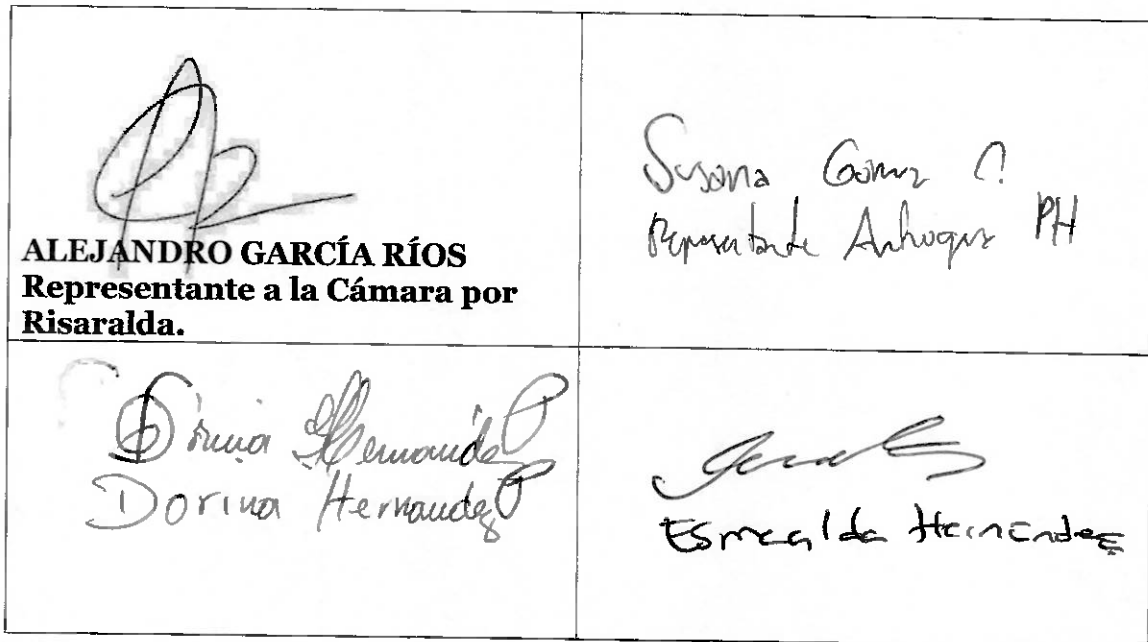 ALEJANDRO GARCÍA RÍOS
Representante a la Cámara por
Risaralda.
Susana Gomez C.
Representante Antioquia PH
Dorina Hernandez P
Dorina Hernandez P
Esmeralda Hernandez